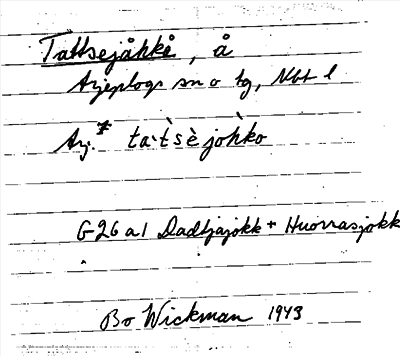 Tattsejåhkå, å
Arjeplogs sn o tg, Nbt l
Arj. ta·t̀sè johko
G26 a1 Dadtjajokk + Huorrasjokk
Bo Wickman 1943